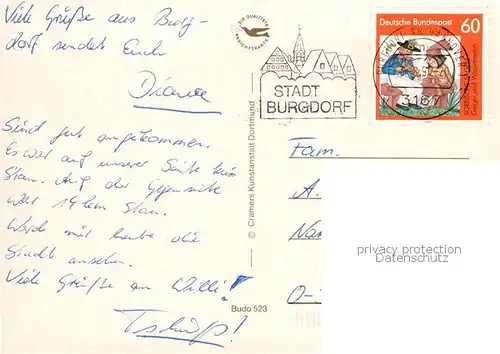 Viele Grüße aus Burg-
dorf sendet Euch
Diana
Sind gut angekommen.
Es war auf unserer Seite kein
Stau. Auf der Gegenseite
war 19 km Stau.
Werde mir heute die
Stadt ansehen.
Viele Grüße an Willi!
Tschüß!
DIE QUALITÄTS
ANSICHTSKARTE
STADT
BURGDORF
Deutsche Bundespost 60
3167
© Cramers Kunstanstalt Dortmund
Budo 523
Fam.
A.
Nan
O-
privacy protection
Datenschutz